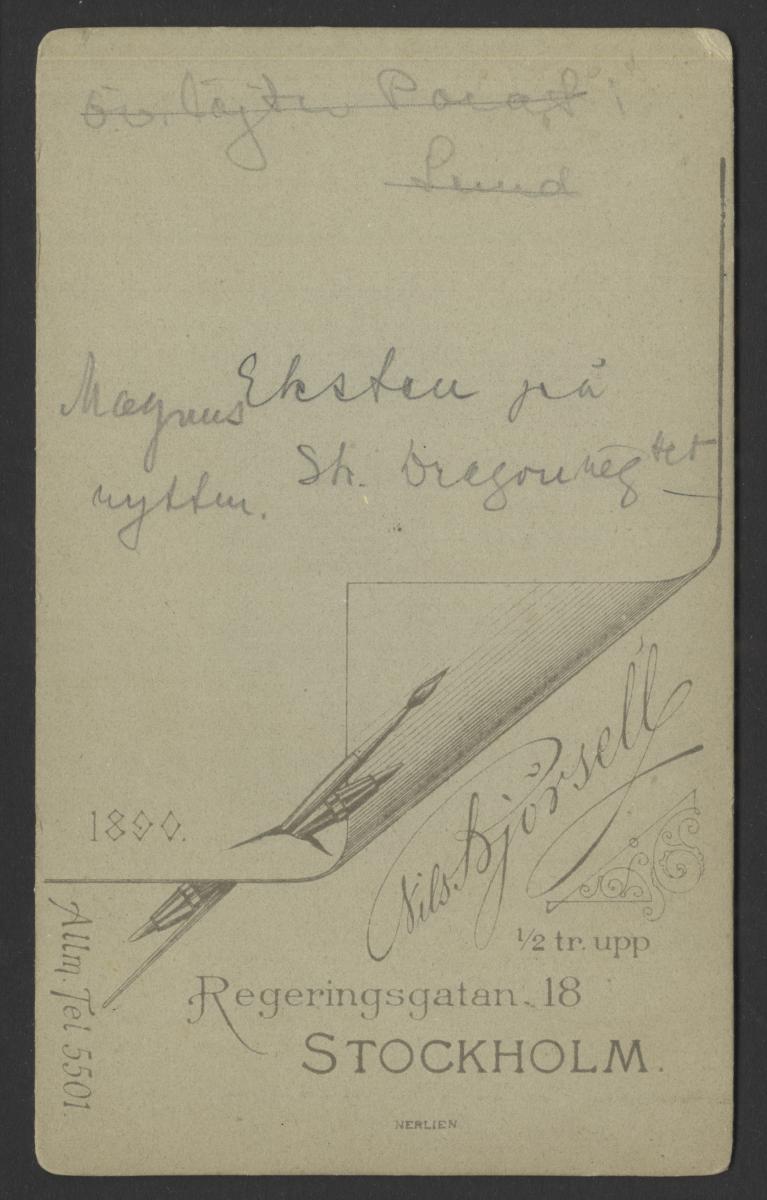 öv. löjtn
i
Lund
Magnus Eksten på
ryttm. Sk. Dragonreg tet
1890.
Nils Björsell
1/2 tr. upp
Regeringsgatan. 18
STOCKHOLM.
Allm. Tel 5501.
NERLIEN